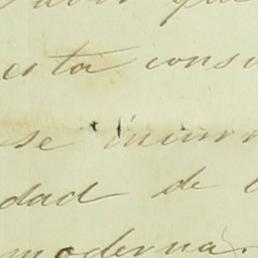 que
esta cons
se incurr
dad de
moderna